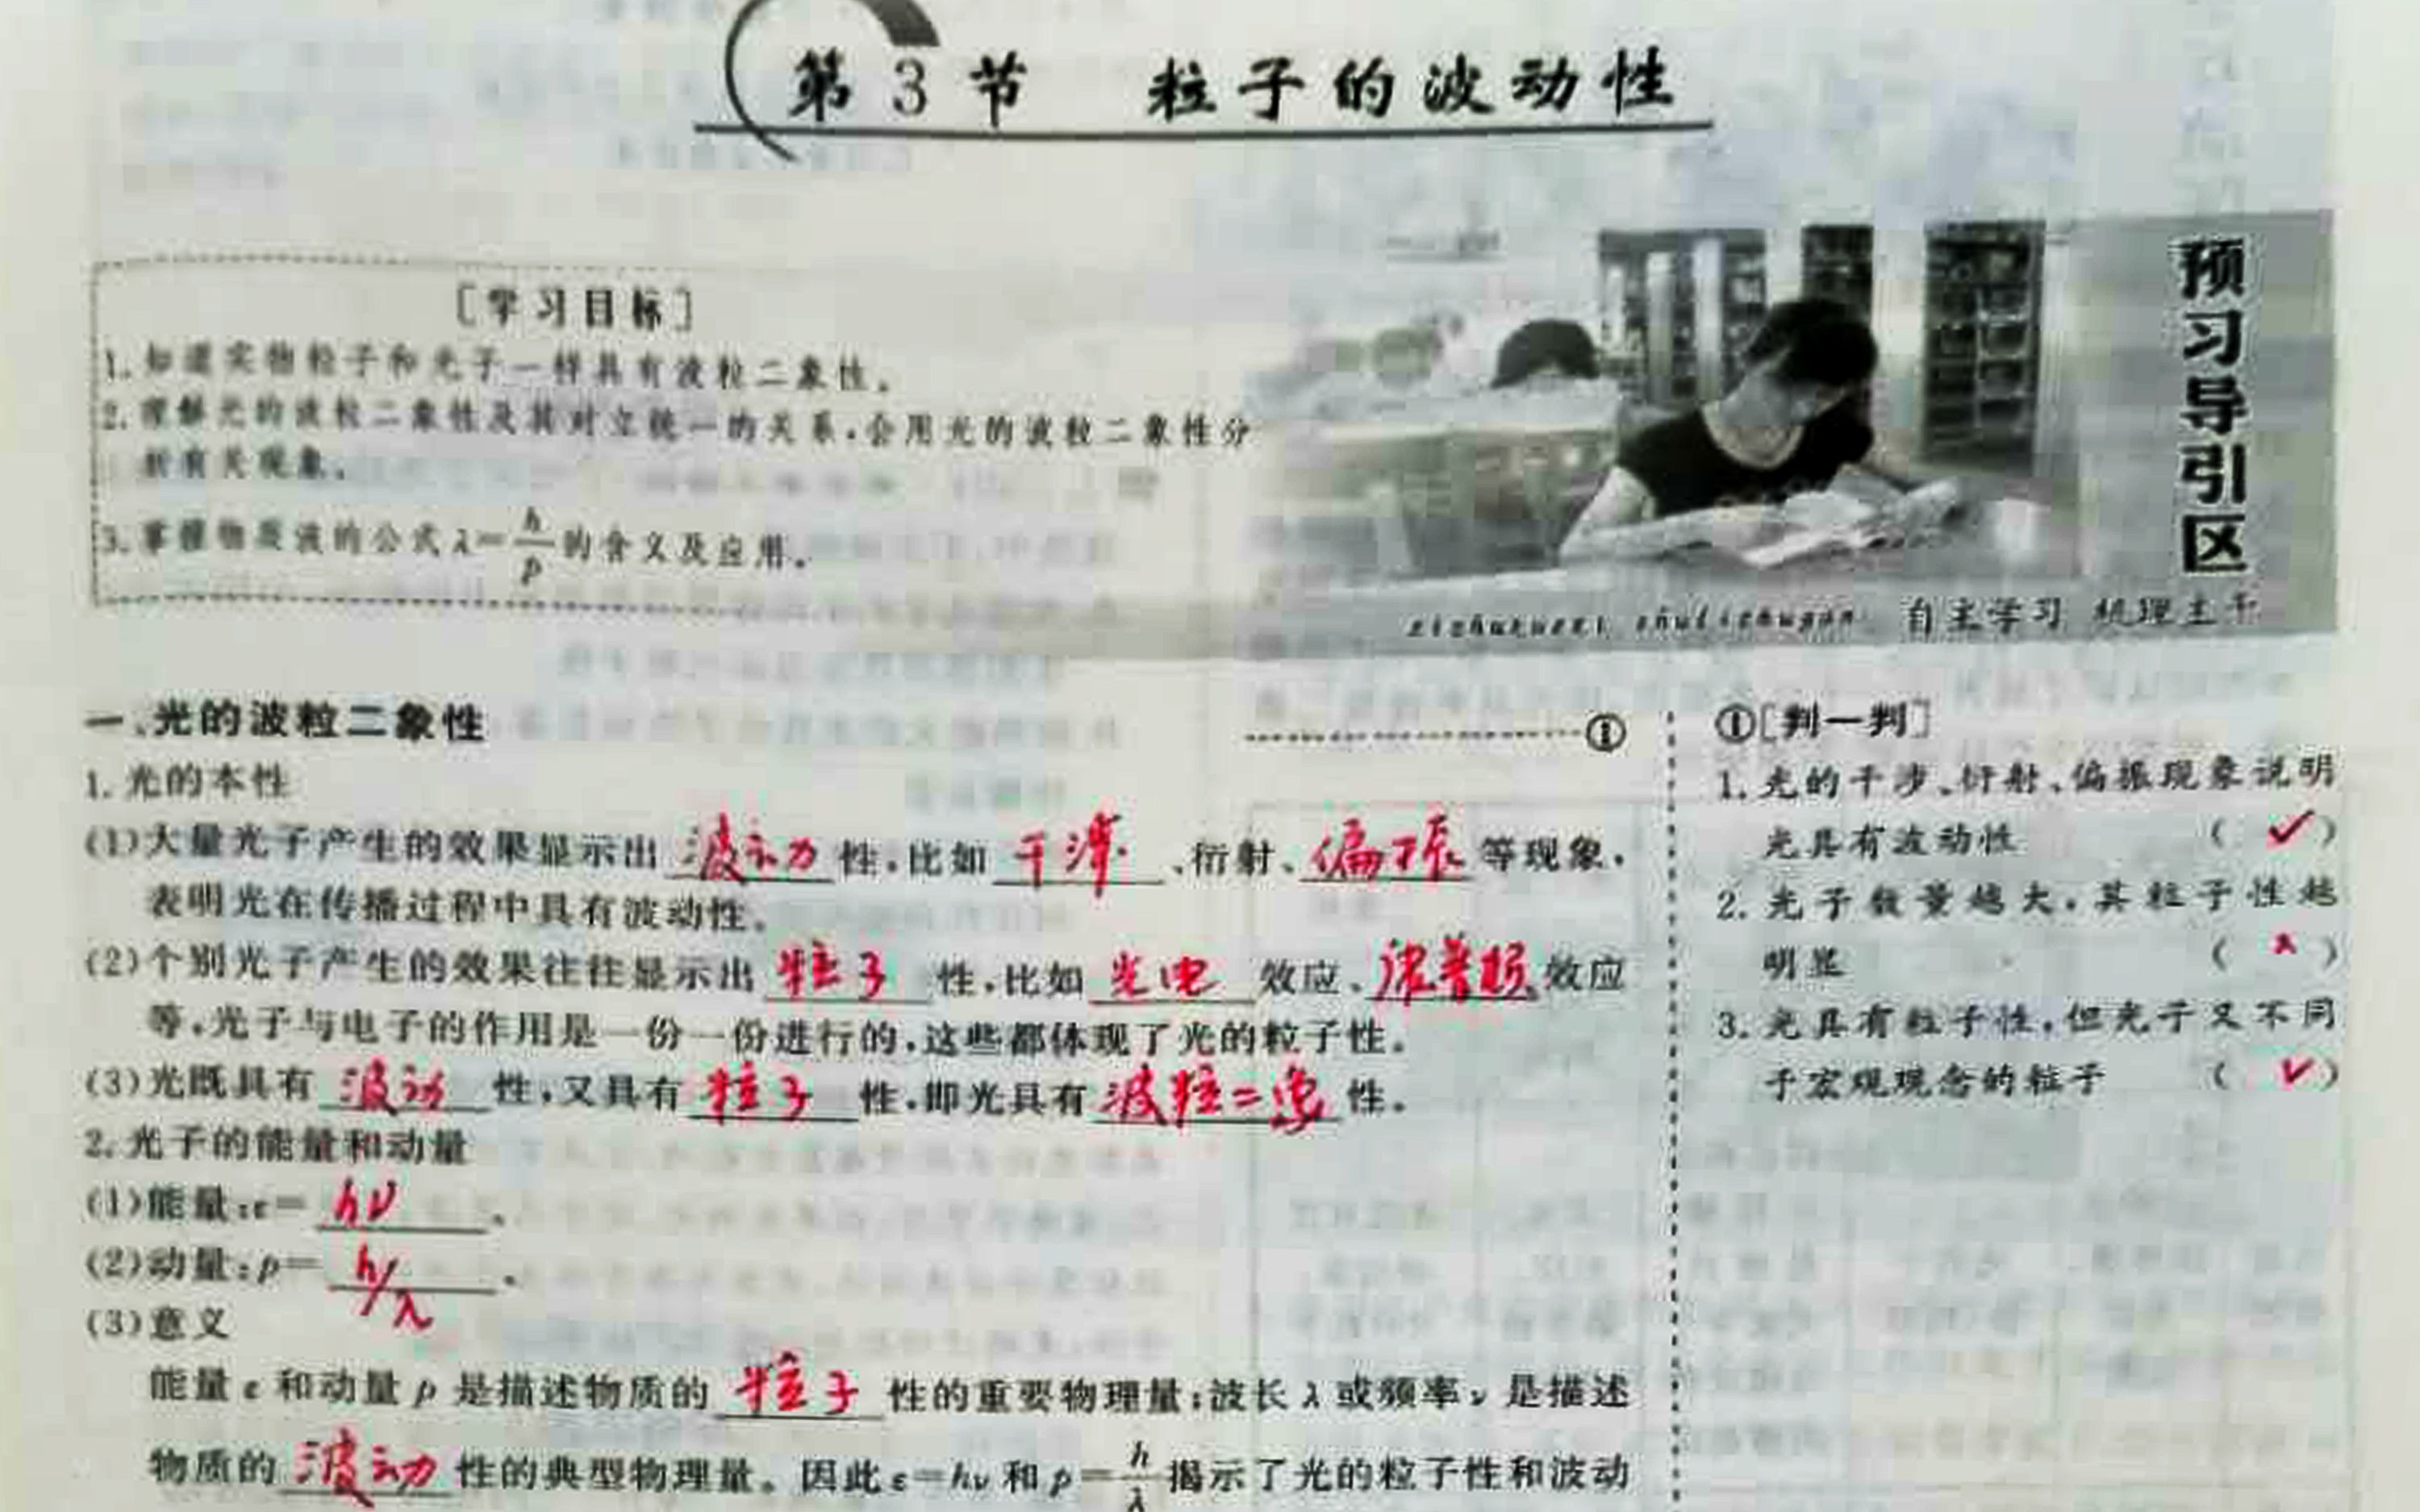 第3节 粒子的波动性
[学习目标]
1. 知道实物粒子和光子一样具有波粒二象性。
2. 理解光的波粒二象性及其对立统一的关系,会用光的波粒二象性分
析有关现象。
3. 掌握物质波的公式 λ=h/p 的含义及应用。
预习导引区
自主学习 梳理主干
一、光的波粒二象性 ①
1. 光的本性
(1)大量光子产生的效果显示出 波动 性,比如 干涉 、衍射、 偏振 等现象,
表明光在传播过程中具有波动性。
(2)个别光子产生的效果往往显示出 粒子 性,比如 光电 效应、 康普顿 效应
等,光子与电子的作用是一份一份进行的,这些都体现了光的粒子性。
(3)光既具有 波动 性,又具有 粒子 性,即光具有 波粒二象 性。
2. 光子的能量和动量
(1)能量:ε= hν 。
(2)动量:p= h/λ 。
(3)意义
能量 ε 和动量 p 是描述物质的 粒子 性的重要物理量;波长 λ 或频率 ν 是描述
物质的 波动 性的典型物理量。因此 ε=hν 和 p=h/λ 揭示了光的粒子性和波动
①[判一判]
1. 光的干涉、衍射、偏振现象说明
光具有波动性 ( ✓ )
2. 光子数量越大,其粒子性越
明显 ( × )
3. 光具有粒子性,但光子又不同
于宏观观念的粒子 ( ✓ )